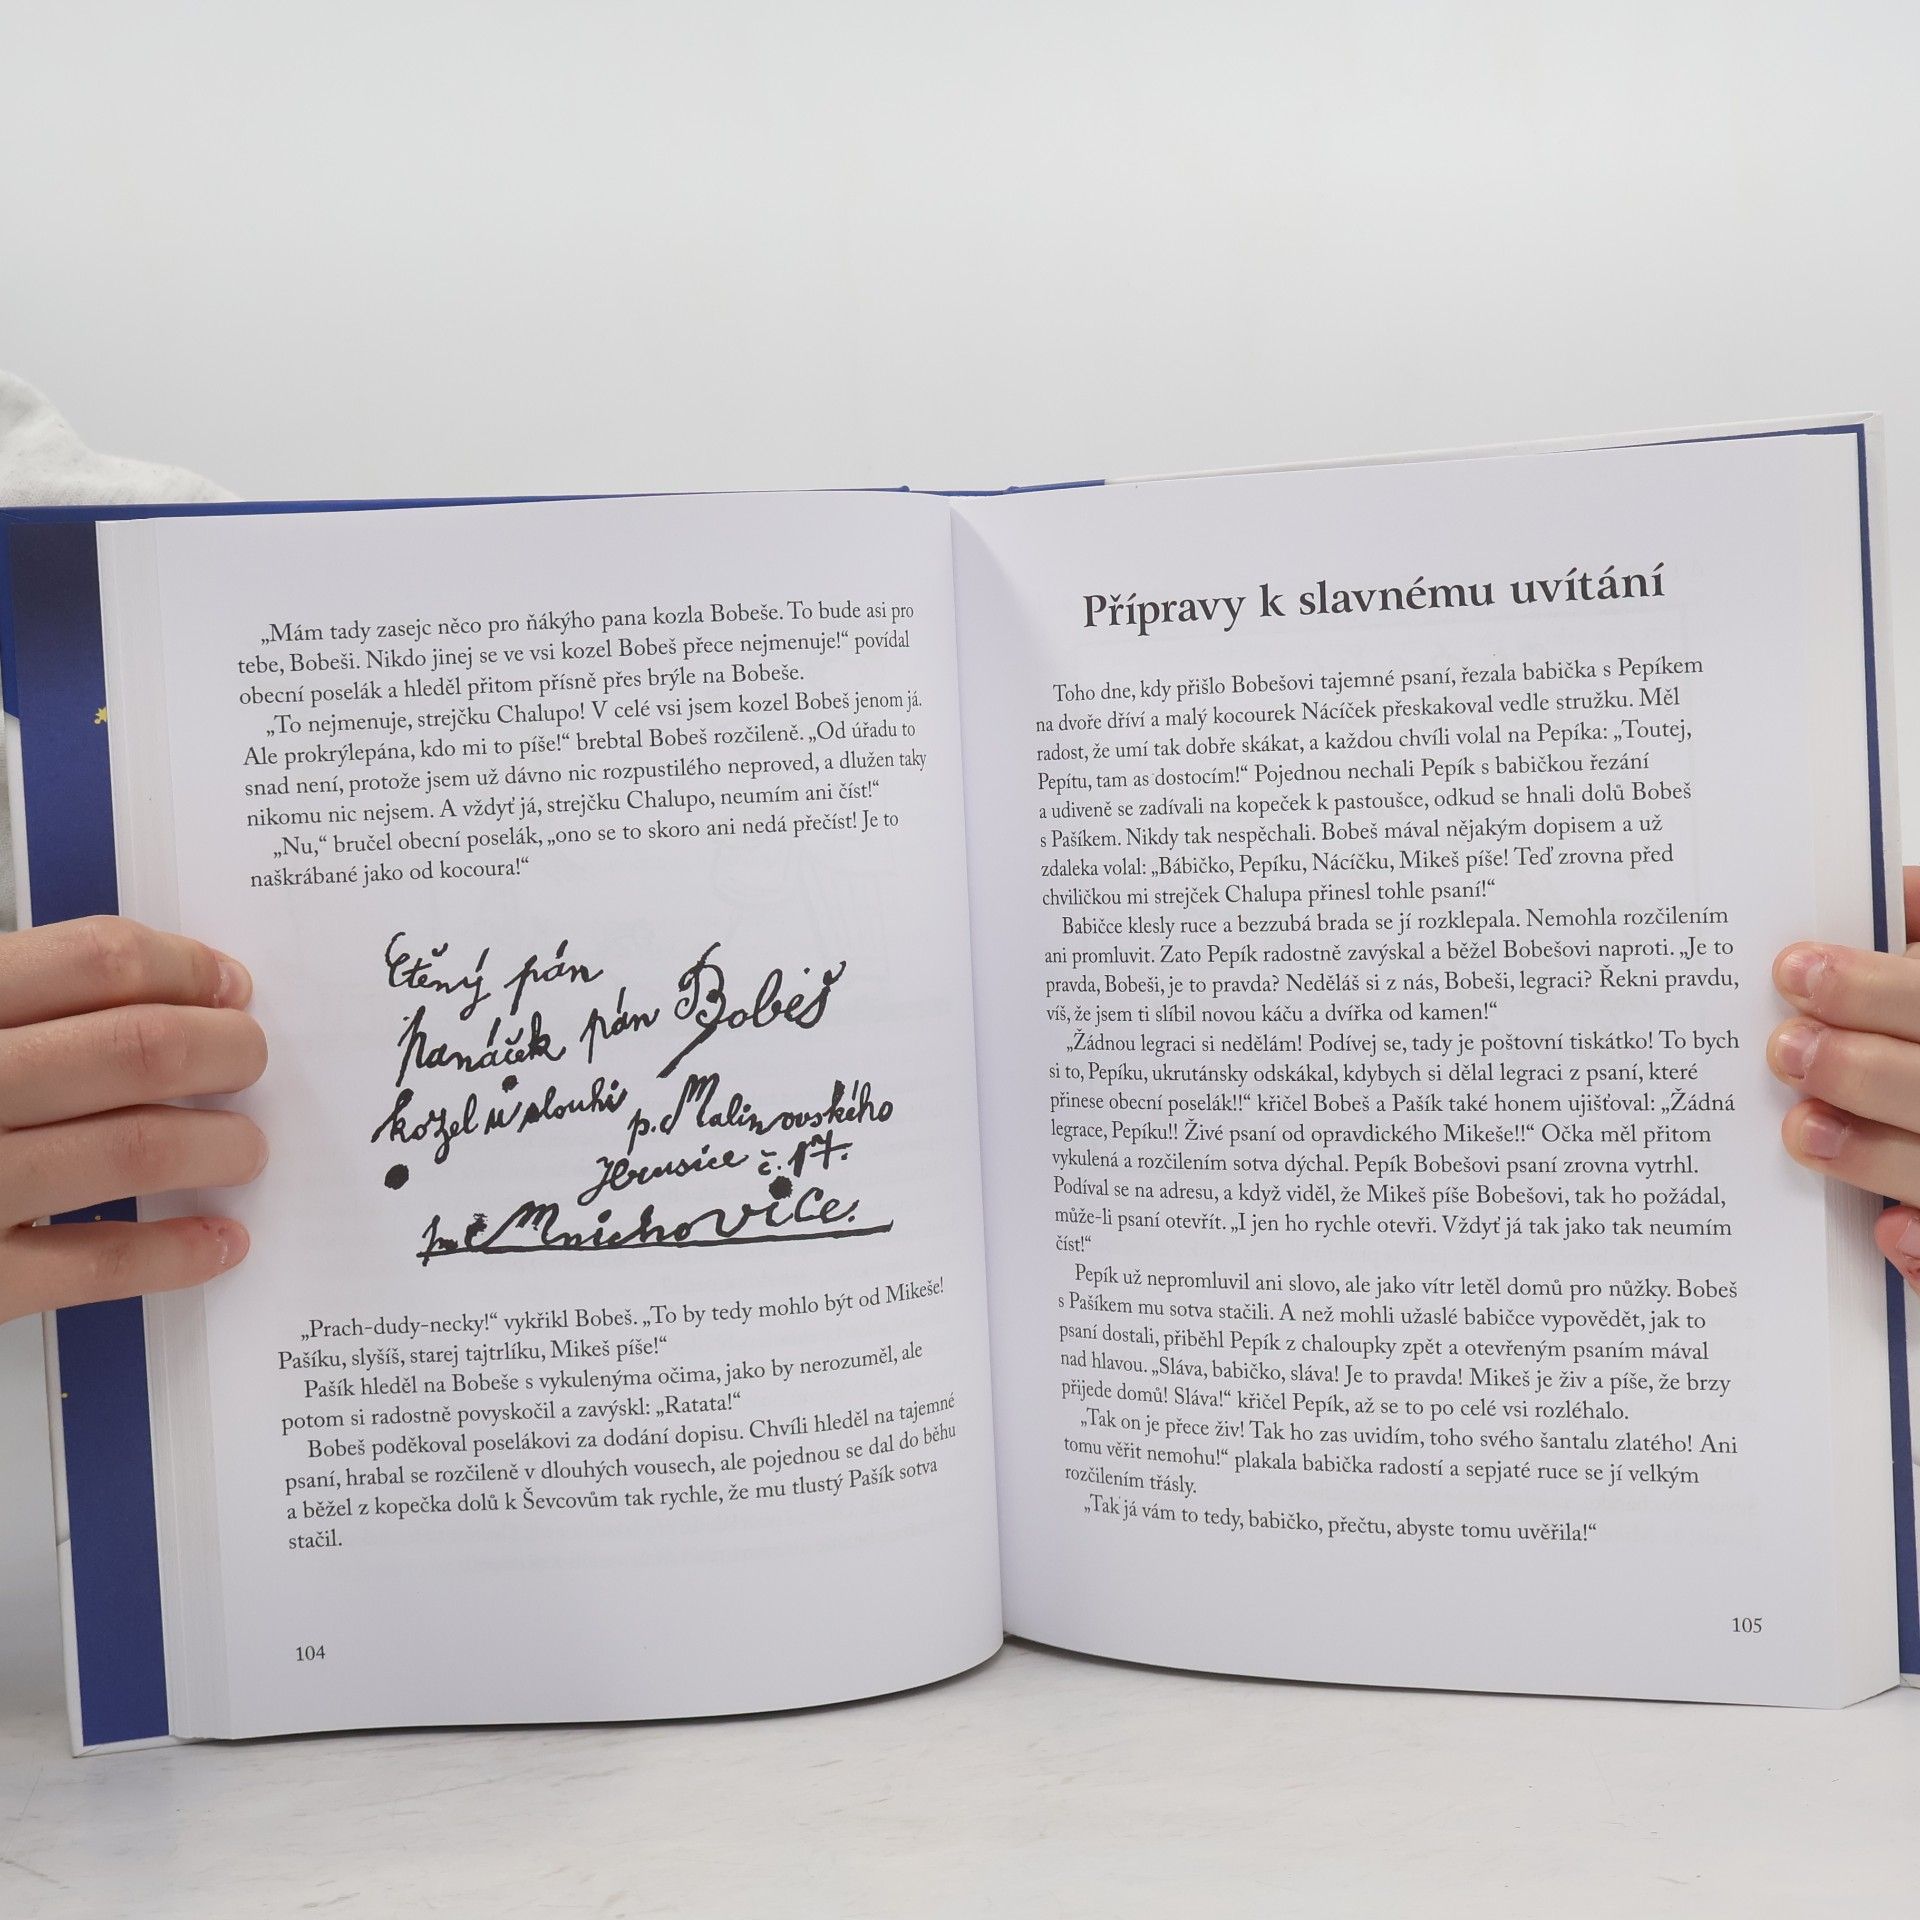 „Mám tady zasejc něco pro ňákýho pana kozla Bobeše. To bude asi pro
tebe, Bobeši. Nikdo jinej se ve vsi kozel Bobeš přece nejmenuje!“ povídal
obecní poselák a hleděl přitom přísně přes brýle na Bobeše.
„To nejmenuje, strejčku Chalupo! V celé vsi jsem kozel Bobeš jenom já.
Ale prokrýlepána, kdo mi to píše!“ brebtal Bobeš rozčileně. „Od úřadu to
snad není, protože jsem už dávno nic rozpustilého neproved, a dlužen taky
nikomu nic nejsem. A vždyť já, strejčku Chalupo, neumím ani číst!“
„Nu,“ bručel obecní poselák, „ono se to skoro ani nedá přečíst! Je to
naškrábané jako od kocoura!“
Ctěný pán
panáček pán Bobeš
kozel u slouhi p. Malinovského
Hrusice č. 17.
Mnichovice.
„Prach-dudy-necky!“ vykřikl Bobeš. „To by tedy mohlo být od Mikeše!
Pašíku, slyšíš, starej tajtrlíku, Mikeš píše!“
Pašík hleděl na Bobeše s vykulenýma očima, jako by nerozuměl, ale
potom si radostně povyskočil a zavýskl: „Ratata!“
Bobeš poděkoval poselákovi za dodání dopisu. Chvíli hleděl na tajemné
psaní, hrabal se rozčileně v dlouhých vousech, ale pojednou se dal do běhu
a běžel z kopečka dolů k Ševcovům tak rychle, že mu tlustý Pašík sotva
stačil.
104
Přípravy k slavnému uvítání
Toho dne, kdy přišlo Bobešovi tajemné psaní, řezala babička s Pepíkem
na dvoře dříví a malý kocourek Nácíček přeskakoval vedle stružku. Měl
radost, že umí tak dobře skákat, a každou chvíli volal na Pepíka: „Toutej,
Pepítu, tam as dostocím!“ Pojednou nechali Pepík s babičkou řezání
a udiveně se zadívali na kopeček k pastoušce, odkud se hnali dolů Bobeš
s Pašíkem. Nikdy tak nespěchali. Bobeš mával nějakým dopisem a už
zdaleka volal: „Bábičko, Pepíku, Nácíčku, Mikeš píše! Teď zrovna před
chviličkou mi strejček Chalupa přinesl tohle psaní!“
Babičce klesly ruce a bezzubá brada se jí rozklepala. Nemohla rozčilením
ani promluvit. Zato Pepík radostně zavýskal a běžel Bobešovi naproti. „Je to
pravda, Bobeši, je to pravda? Neděláš si z nás, Bobeši, legraci? Řekni pravdu,
víš, že jsem ti slíbil novou káču a dvířka od kamen!“
„Žádnou legraci si nedělám! Podívej se, tady je poštovní tiskátko! To bych
si to, Pepíku, ukrutánsky odskákal, kdybych si dělal legraci z psaní, které
přinese obecní poselák!!“ křičel Bobeš a Pašík také honem ujišťoval: „Žádná
legrace, Pepíku!! Živé psaní od opravdického Mikeše!!“ Očka měl přitom
vykulená a rozčilením sotva dýchal. Pepík Bobešovi psaní zrovna vytrhl.
Podíval se na adresu, a když viděl, že Mikeš píše Bobešovi, tak ho požádal,
může-li psaní otevřít. „I jen ho rychle otevři. Vždyť já tak jako tak neumím
číst!“
Pepík už nepromluvil ani slovo, ale jako vítr letěl domů pro nůžky. Bobeš
s Pašíkem mu sotva stačili. A než mohli užaslé babičce vypovědět, jak to
psaní dostali, přiběhl Pepík z chaloupky zpět a otevřeným psaním mával
nad hlavou. „Sláva, babičko, sláva! Je to pravda! Mikeš je živ a píše, že brzy
přijede domů! Sláva!“ křičel Pepík, až se to po celé vsi rozléhalo.
„Tak on je přece živ! Tak ho zas uvidím, toho svého šantalu zlatého! Ani
tomu věřit nemohu!“ plakala babička radostí a sepjaté ruce se jí velkým
rozčilením třásly.
„Tak já vám to tedy, babičko, přečtu, abyste tomu uvěřila!“
105